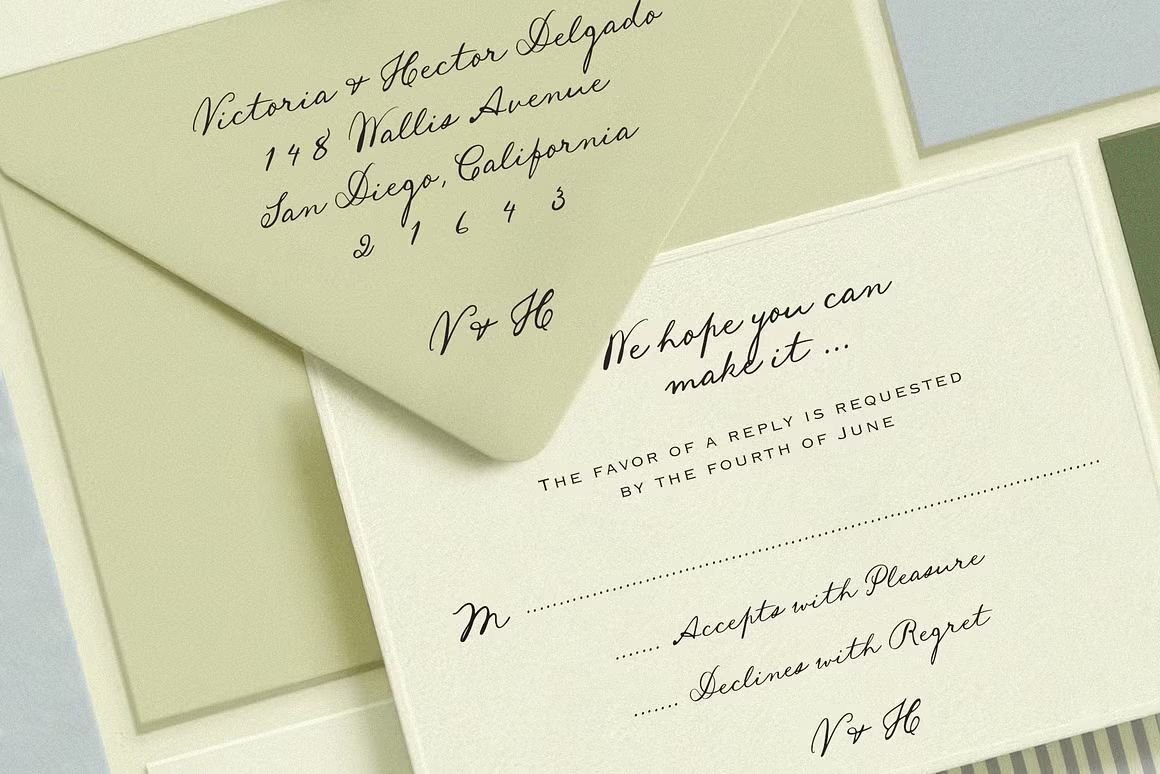 Victoria & Hector Delgado
148 Wallis Avenue
San Diego, California
2 1 6 4 3
V & H
We hope you can
make it ...
The favor of a reply is requested
by the fourth of June
M ..........
....... Accepts with Pleasure
....... Declines with Regret
V & H